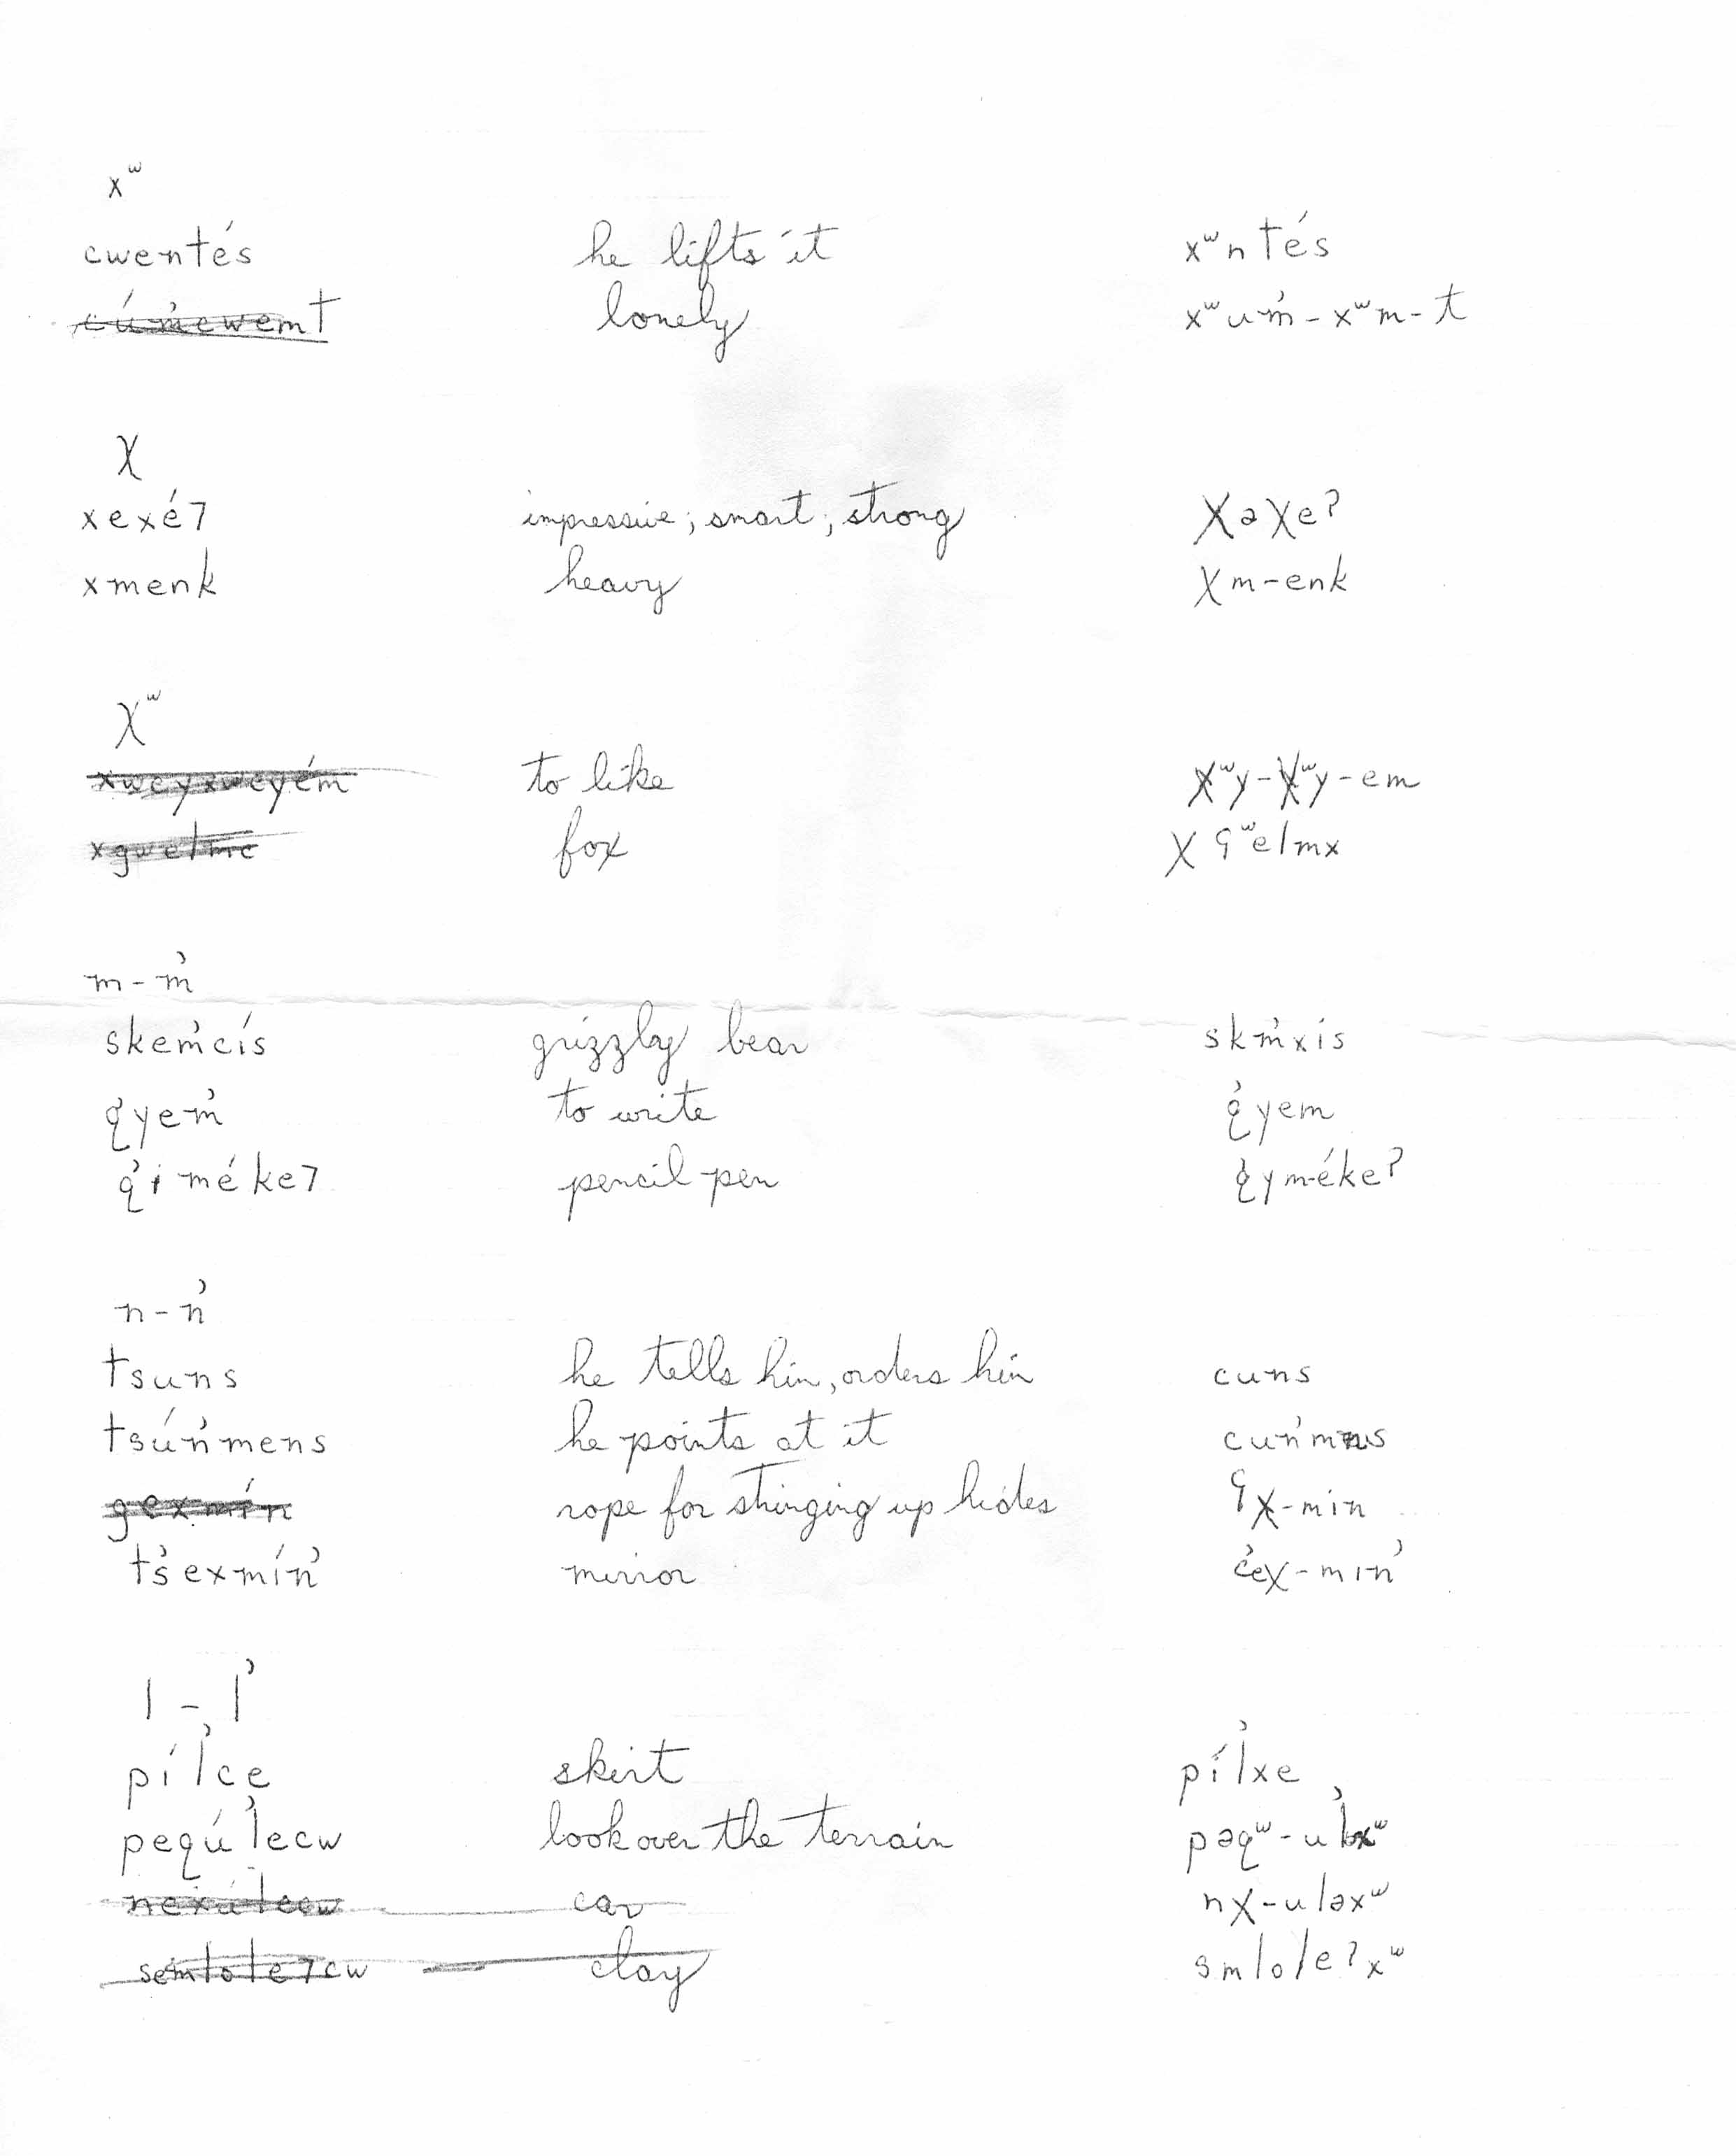 xʷ
cwentés he lifts it xʷntés
cúm̓cwemt lonely xʷum̓-xʷm-t
χ
xexé7 impressive; smart; strong χəχeʔ
xmenk heavy χm-enk
χʷ
xweyxweyém to like χʷy-χʷy-em
xgwelmc fox χʕʷelmx
m-m̓
skem̓cís grizzly bear skm̓xis
q̓yem̓ to write q̓yem
q̓iméke7 pencil-pen q̓yméke?
n-n̓
tsuns he tells hin, orders hin cuns
tsún̓mens he points at it cun̓mns
gexmín rope for stringing up hides ʕχ-min
ts̓exmín̓ mirror c̓eχ-min̓
l-l̓
píl̓ce skirt píl̓xe
pequ̓́l̓ecw look over the terrain pəqʷ-ul̓əxʷ
nexulecw car nχ-uləxʷ
semlole7cw clay smlole?xʷ